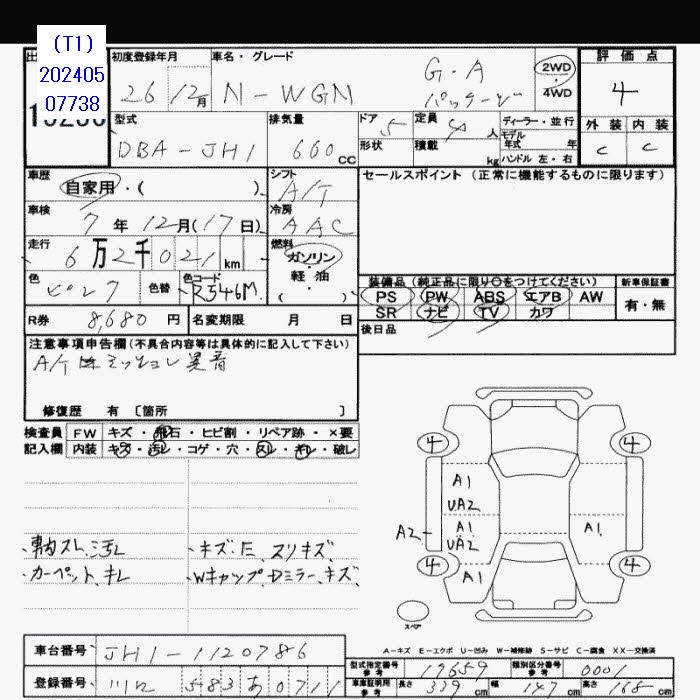 (T1)
202405
07738
初度登録年月
車名・グレード
評価点
26
12月
N-WGN
G・A
パッケージ
2WD
・
4WD
4
型式
排気量
ドア
定員
ディーラー・並行
外装
内装
DBA-JH1
660cc
5
4人
モデル
年式 年
形状
積載
kg
ハンドル 左・右
C
C
車歴
自家用・( )
シフト
A/T
セールスポイント(正常に機能するものに限ります)
車検
7年12月(17日)
冷房
AAC
走行
6万2千021km
燃料
ガソリン
軽・油
( )
色
ピンク
色替
色コード
R546M
装備品(純正品に限り○をつけてください)
新車保証書
PS
PW
ABS
エアB
AW
有・無
SR
ナビ
TV
カワ
R券
8,680円
名変期限 月 日
後日品
注意事項申告欄(不具合内容等は具体的に記入して下さい)
ミッション異音
修復歴 有〔箇所 〕
検査員
FW
キズ・飛石・ヒビ割・リペア跡・×要
記入欄
内装
キズ・汚レ・コゲ・穴・スレ・キレ・破レ
4
4
A1
UA2
A2
A1
UA2
A1
4
4
A1
スペア
カーペット、キレ
スリキズ
Wキャップ、Dミラー、キズ
A-キズ E-エクボ U-凹み W-補修跡 S-サビ C-腐食 XX-交換済
車台番号
JH1-1120786
型式指定番号
参考
17659
類別区分番号
参考
0001
登録番号
583 あ 0711
車庫証明用
参考
長さ
339cm
幅
147cm
高さ
168cm